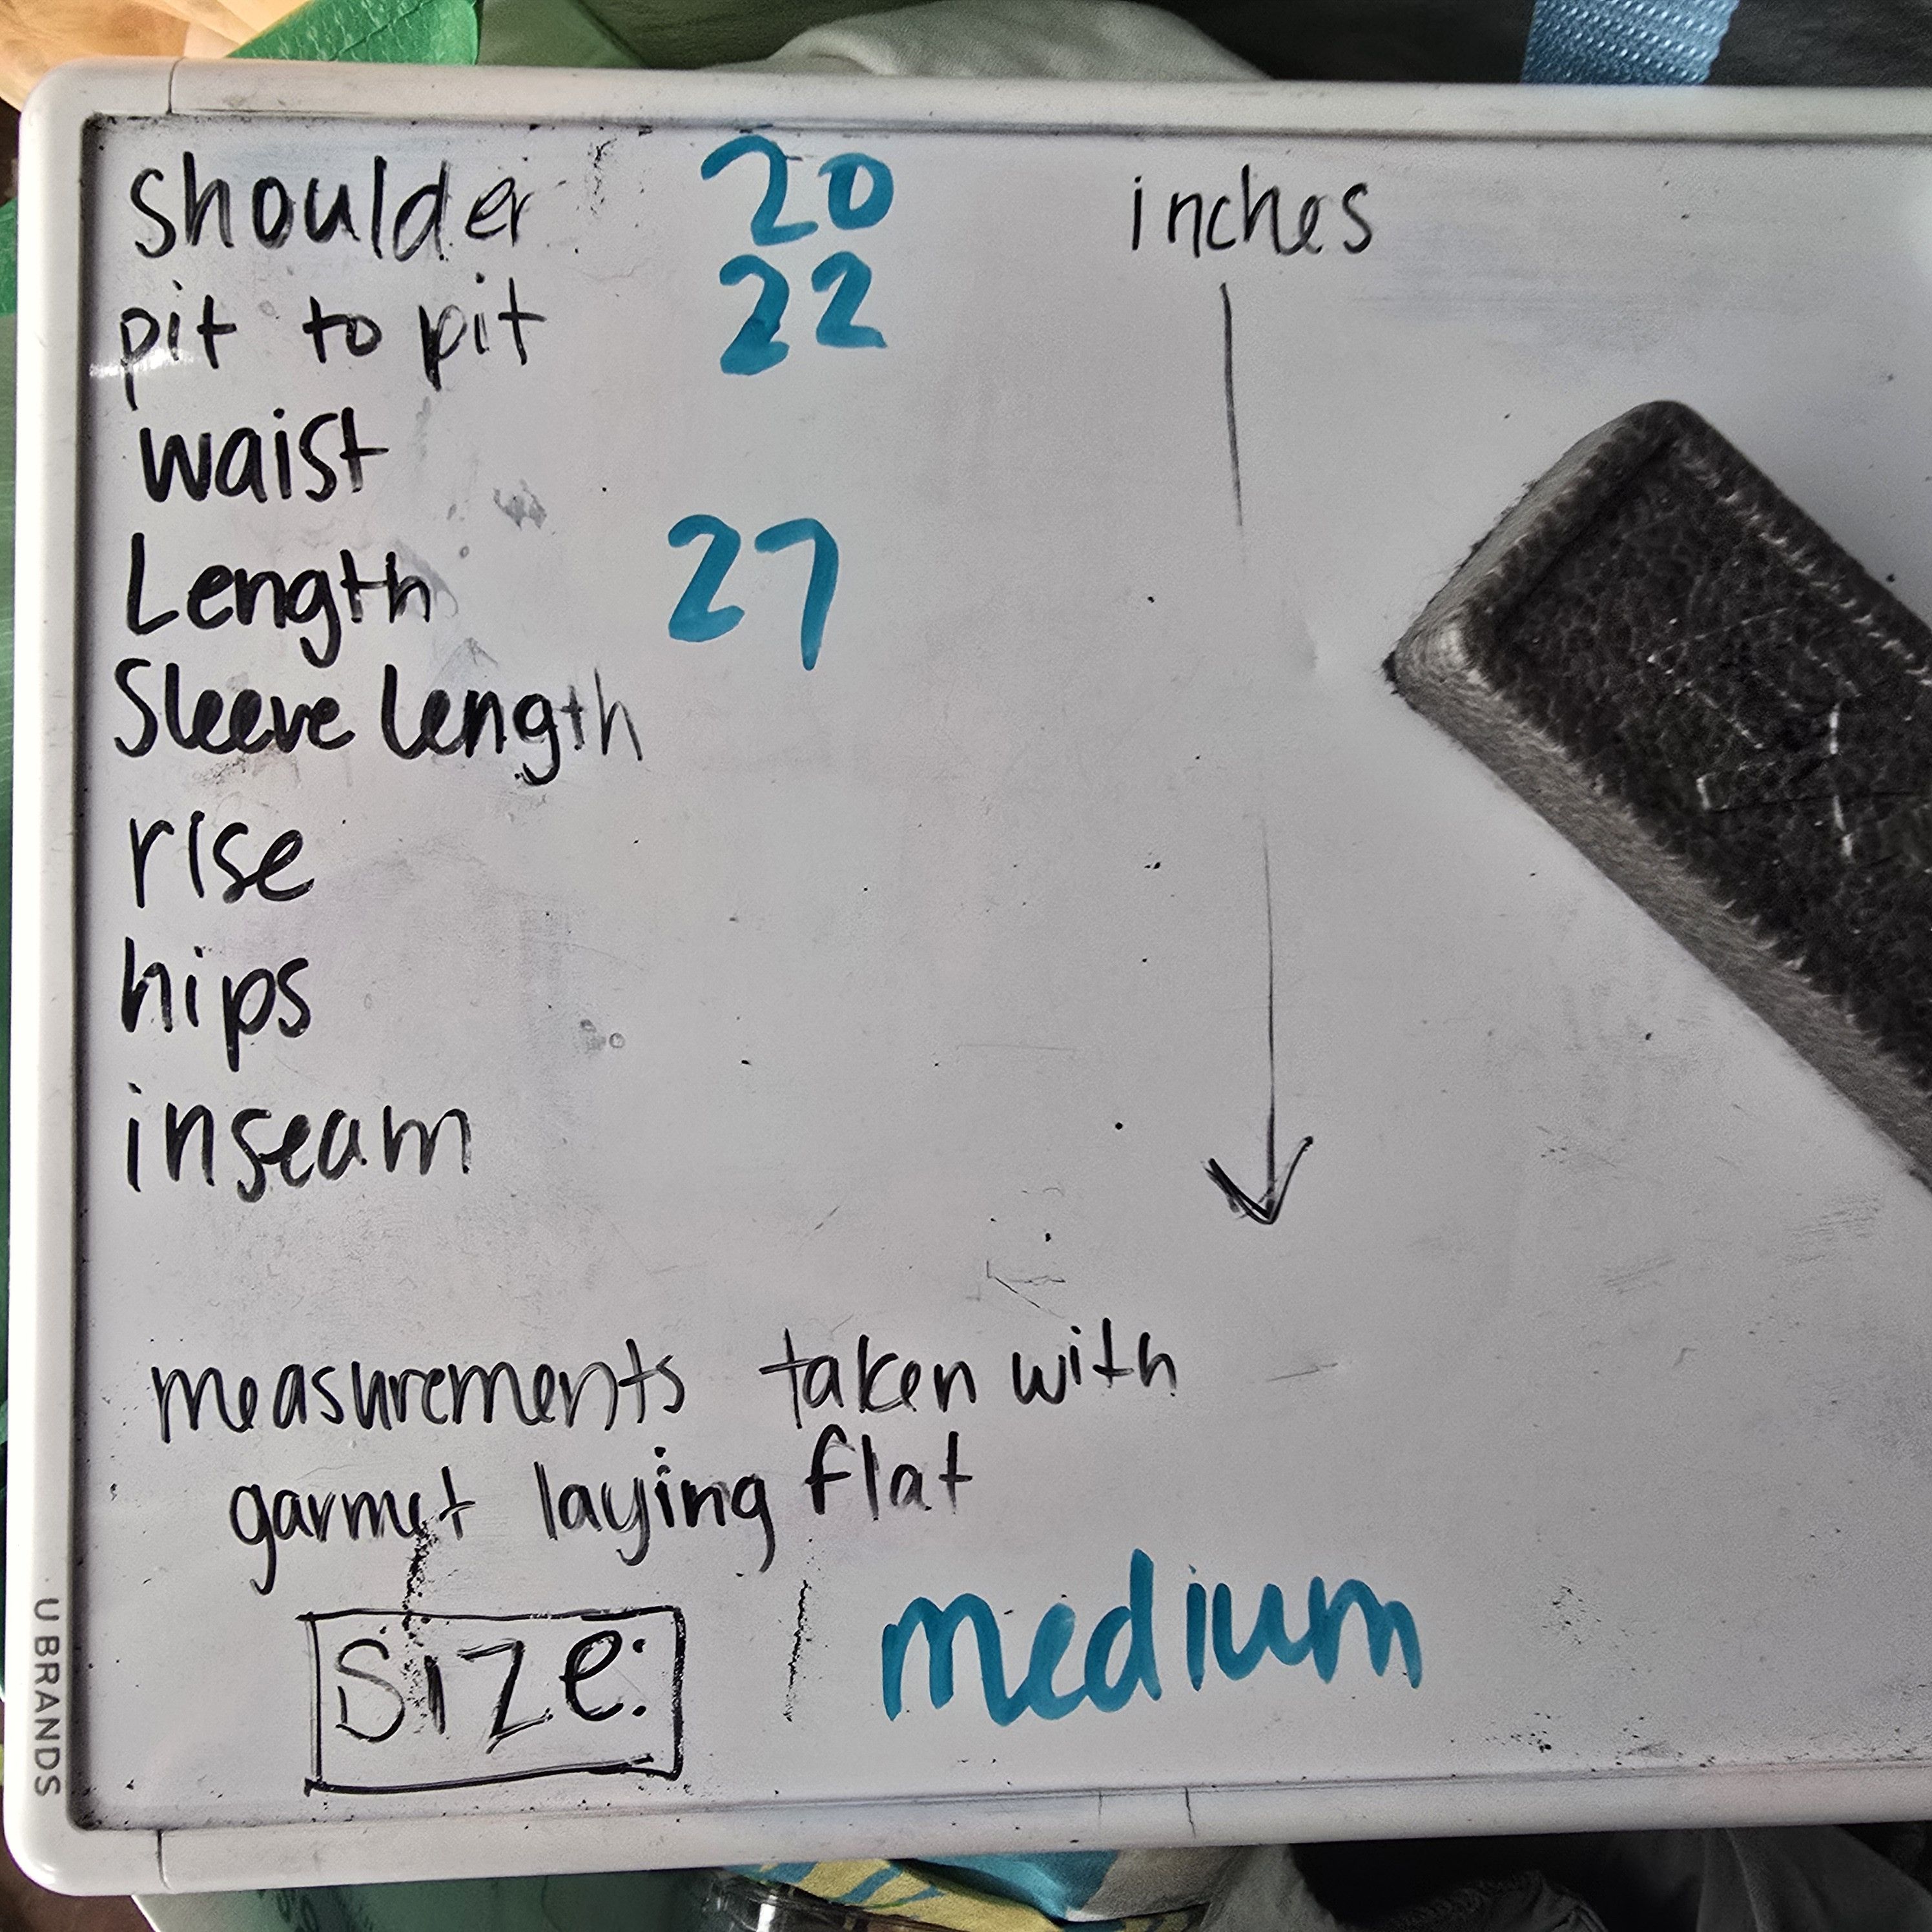 shoulder 20 inches
pit to pit 22
waist
Length 27
Sleeve length
rise
hips
inseam
measurements taken with
garmet laying flat
Size: medium
U BRANDS